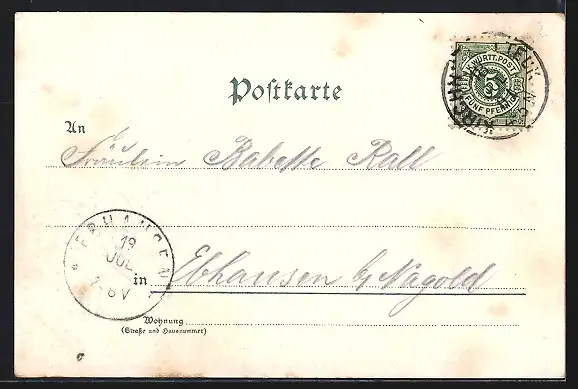 K. WÜRTT. POST
5
FÜNF PFENNIG
Postkarte
An
Fräulein Babette Rall
EBHAUSEN
19
JUL
7-8 V
in Ebhausen b/ Nagold
Wohnung
(Straße und Hausnummer)